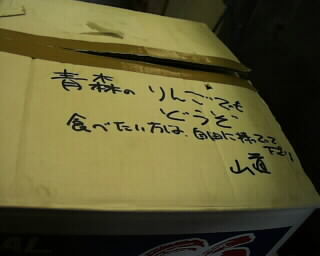 青森の りんごでも
どうぞ
食べたい方は、自由に持って
下さい
山直
AL